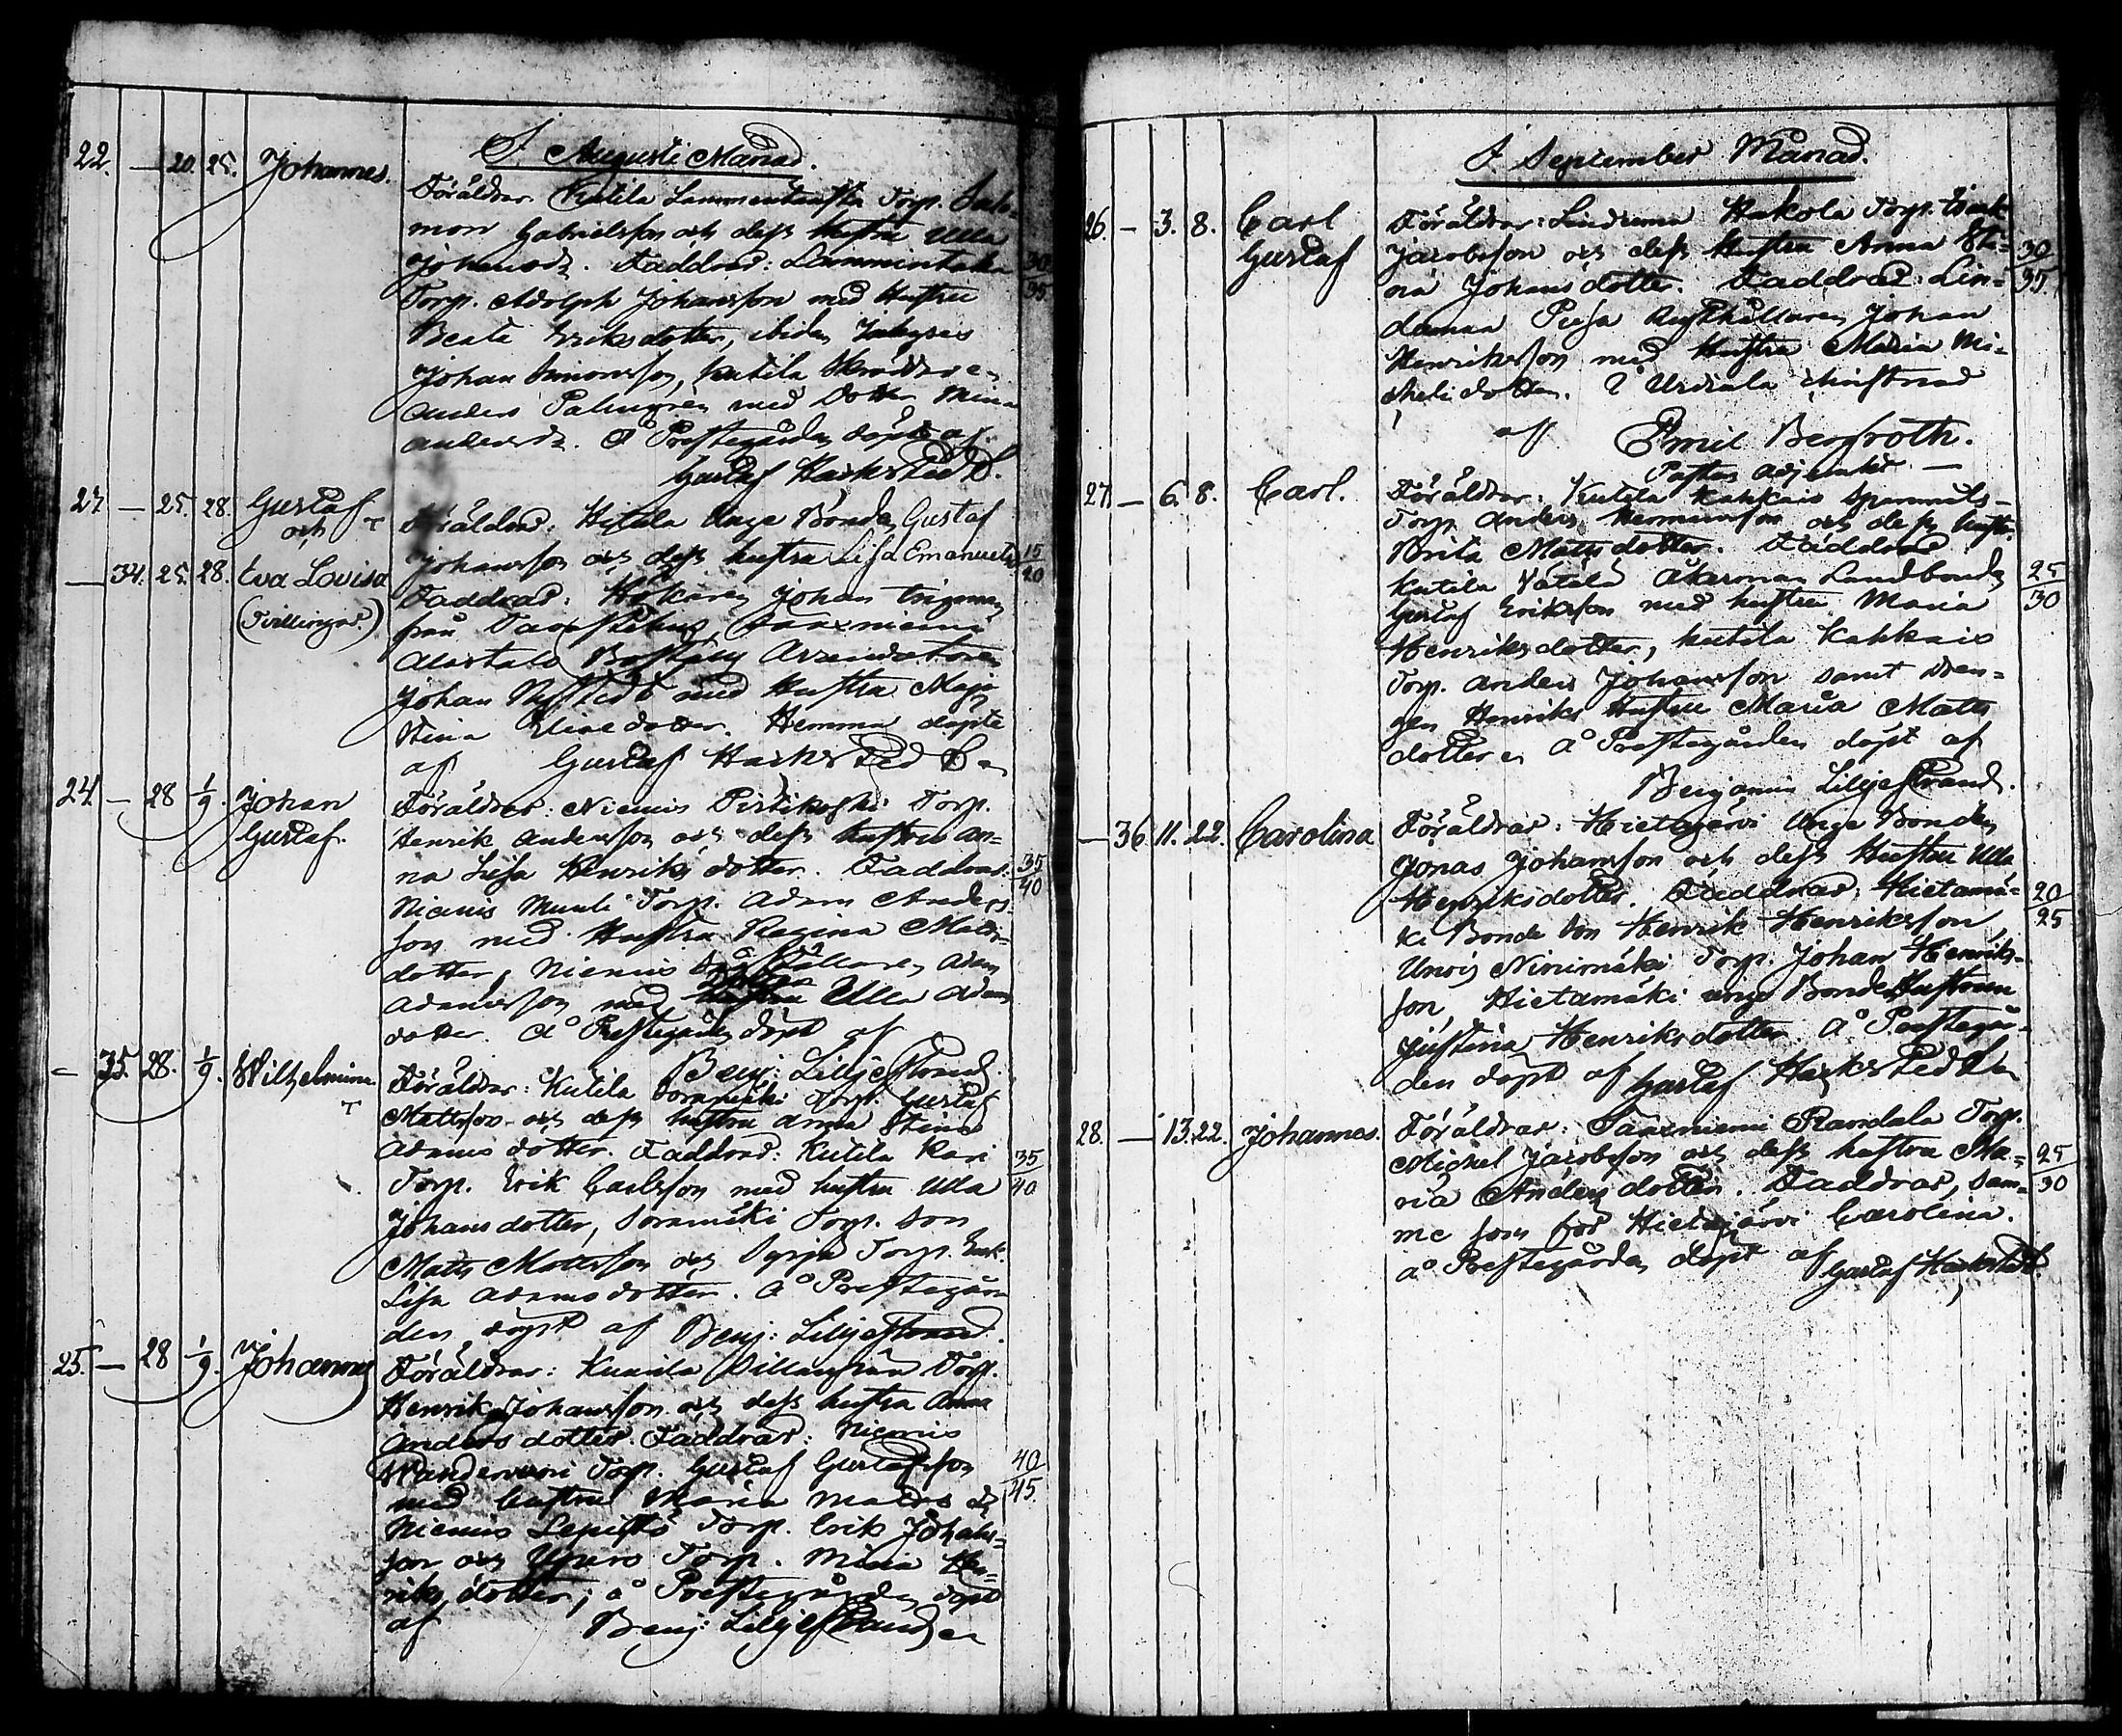 I Augusti Månad.
22. — 20. 25. Johannes.
Föräldrar Kutila Torp.
mon Gabrielsson och dess hustru Ulla
Johansd. Faddrar: Lammintaka
30/35
Torp. Adolph Johansson med Hustru
Beata Eriksdotter, ibid.
Johan Simonsson, Kutila
Anders Palmgren med Dotter Mina
Andersd. Å Prestegården döpt af
Gustaf Hackstedt.
27 — 25. 28. Gustaf
och
— 34. 25. 28. Eva Lovisa
(Tvillingar.)
Föräldrar: Unge Bonden Gustaf
Johansson och dess hustru Lisa Emanuelsd
15/20
Faddrar: Johan
från Tavastehus,
Arrendatoren
Johan med Hustru Maja
Stina dotter. Hemma döpte
af Gustaf Hackstedt
24 — 28 1/9. Johan
Gustaf.
Föräldrar: Niemis Torp.
Henrik Andersson och dess hustru An-
na Lisa Henriksdotter. Faddrar:
35/40
Niemis Torp. Adam Anders-
son med Hustru Regina Matts-
dotter, Niemis Adam
Adamsson med Ulla Adams
dotter. Å Prestegården döpt af
Benj: Liljestrand.
— 35. 28. 1/9. Wilhelmina
Föräldrar: Kutila Sorrmäki Torp. Gustaf
Mattsson och dess hustru Anna Stina
Adamsdotter. Faddrar: Kutila Kari
35/40
Torp. Erik Carlsson med hustru Ulla
Johansdotter, Sorrmäki Torp. Son
Matts Mattsson och Torp.
Lisa Adamsdotter. Å Prestegår
den döpt af Benj: Liljestrand.
25. — 28 1/9. Johannes
Föräldrar: Torp.
Henrik Johansson och dess hustru Anna
Andersdotter. Faddrar: Niemis
Torp. Gustaf Gustafsson
40/45.
med hustru Maria Matts d
Niemis Lepistö Torp. Erik Johans-
son och Torp. Maria Hen-
riksdotter; å Prestegården döpt
af Benj: Liljestrand
I September Månad.
26. — 3. 8. Carl
Gustaf
Föräldrar: Hakola Torp. Isak
Jacobsson och dess hustru Anna Sti-
30/35.
na Johansdotter. Faddrar: Lin-
Johan
Henriksson med Hustru Maria Mi-
chelsdotter. I Urdiala christnad
af Emil Bergroth.
Pastors adjunkt. —
27. — 6. 8. Carl.
Föräldrar: Kutila Kahkais
Torp. Anders Hermansson och dess hustr.
Brita Mattsdotter. Faddrar
Kutila Åkerman Landbonden
25/30
Gustaf Eriksson med hustru Maria
Henriksdotter, Kutila Kahkais
Torp. Anders Johansson samt Dren-
gen Henriks Hustru Maria Matts
dotter. Å Prestegården döpt af
Benjamin Liljestrand.
— 36 11. 22. Carolina
Föräldrar: Hietajärvi Unge Bonden
Jonas Johansson och dess Hustru Ulla
Henriksdotter. Faddrar: Hietamä-
20/25
ki Bonde Son Henrik Henriksson,
Ninimäki Torp. Johan Henriks-
son, Hietamäki unge Bonde Hustrun
Justina Henriksdotter. Å Prestegår-
den döpt af Gustaf Hackstedt
28. — 13. 22. Johannes.
Föräldrar: Randala Torp.
Michel Jacobsson och dess hustru Ma-
25/30
ria Andersdotter. Faddrar, sam-
me som för Hietajärvi Carolina.
å Prestegården döpt af Gustaf Hackstedt.